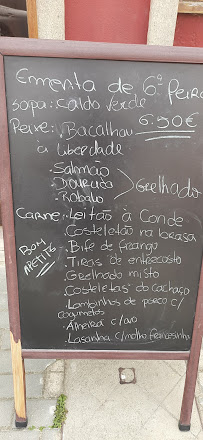 Ementa de 6ª Feira
Sopa: Caldo Verde
6.90€
Peixe: . Bacalhau
à liberdade
. Salmão
. Dourada
. Robalo
Grelhado
Carne: . Leitão à Conde
. Costeletão na brasa
. Bife de frango
. Tiras de entrecosto
. Grelhado misto
. Costeletas do cachaço
. Lombinhos de porco c/
cogumelos
. Alheira c/ovo
. Lasanha c/molho
BOM
APETITE